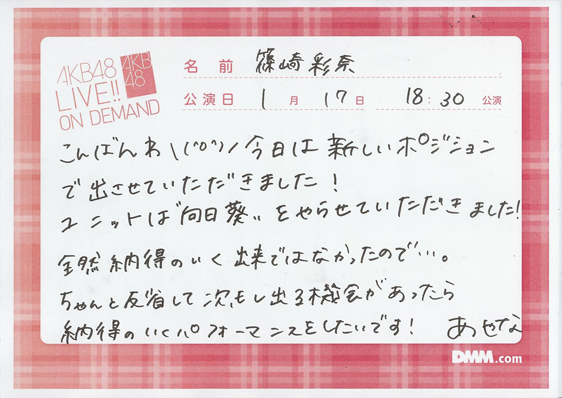 AKB48
LIVE!!
ON DEMAND
AKB
48
名前 篠崎彩奈
公演日 1月17日 18:30公演
こんばんわ\(^o^)/今日は新しいポジション
で出させていただきました!
ユニットは"向日葵"をやらせていただきました!
全然納得のいく出来ではなかったので…。
ちゃんと反省して次もし出る機会があったら
納得のいくパフォーマンスをしたいです! あやな
DMM.com